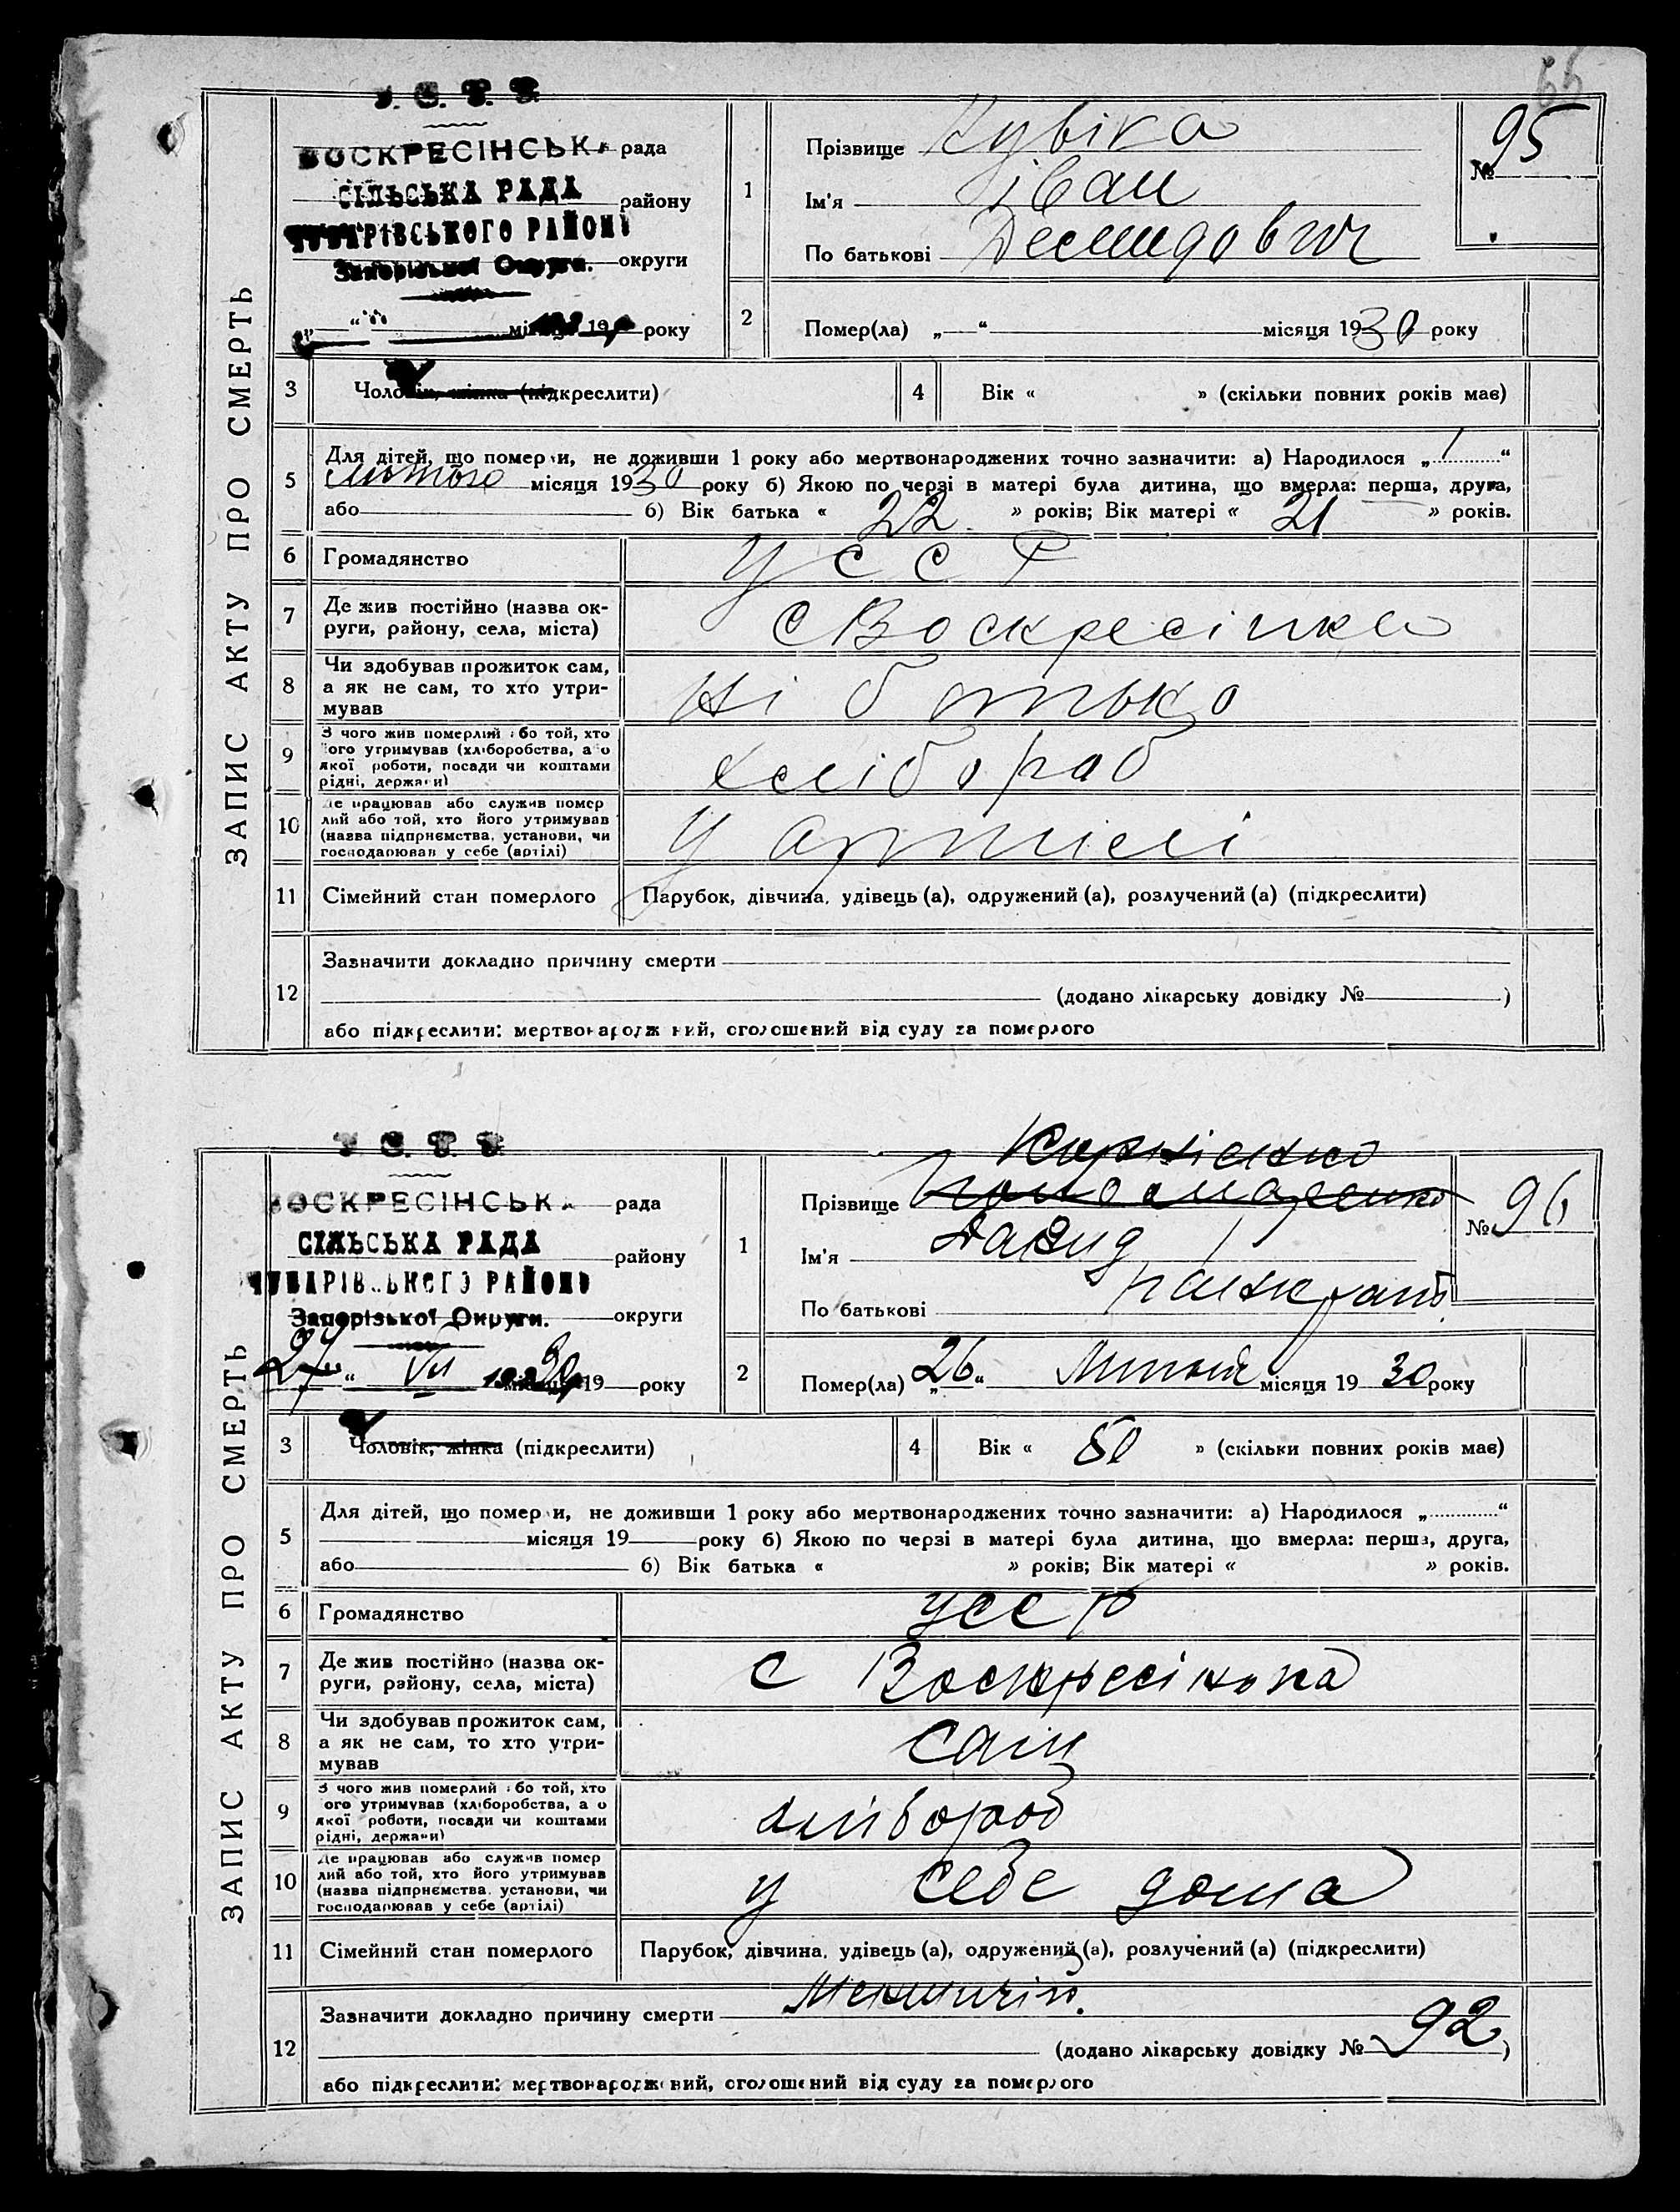 66
У. С. Т. Т.
ВОСКРЕСІНСЬКА рада
СІЛЬСЬКА РАДА району
ЧУБАРІВСЬКОГО РАЙОНУ
Запорізької Округи. округи
„ “ місяця 19 року
ЗАПИС АКТУ ПРО СМЕРТЬ
1
Прізвище Кувіка
Ім'я Іван
По батькові Демидович
№ 95
2
Помер(ла) „ “ місяця 1930 року
3 Чоловік, жінка (підкреслити)
4 Вік « » (скільки повних років має)
5
Для дітей, що померли, не доживши 1 року або мертвонароджених точно зазначити: а) Народилося „ 1 “
лютого місяця 1930 року б) Якою по черзі в матері була дитина, що вмерла: перша, друга,
або б) Вік батька « 22 » років; Вік матері « 21 » років.
6 Громадянство УССР
7 Де жив постійно (назва ок-
руги, району, села, міста) с Воскресінка
8 Чи здобував прожиток сам,
а як не сам, то хто утри-
мував ні батько
9 З чого жив померлий або той, хто
його утримував (хліборобства, або
якої роботи, посади чи коштами
рідні, держави) хлібороб
10 Де працював або служив помер
лий або той, хто його утримував
(назва підприємства, установи, чи
господарював у себе (артілі) У артілі
11 Сімейний стан померлого Парубок, дівчина, удівець (а), одружений (а), розлучений (а) (підкреслити)
12
Зазначити докладно причину смерти
(додано лікарську довідку № )
або підкреслити: мертвонароджений, оголошений від суду за померлого
У. С. Т. Т.
ВОСКРЕСІНСЬКА рада
СІЛЬСЬКА РАДА району
ЧУБАРІВСЬКОГО РАЙОНУ
Запорізької Округи. округи
„ 27 “ VII місяця 19 30 року
ЗАПИС АКТУ ПРО СМЕРТЬ
1
Прізвище
Ім'я Давид
По батькові Панкрат
№ 96
2
Помер(ла) „ 26 “ місяця 19 30 року
3 Чоловік, жінка (підкреслити)
4 Вік « » (скільки повних років має)
5
Для дітей, що померли, не доживши 1 року або мертвонароджених точно зазначити: а) Народилося „ “
місяця 19 року б) Якою по черзі в матері була дитина, що вмерла: перша, друга,
або б) Вік батька « » років; Вік матері « » років.
6 Громадянство УССР
7 Де жив постійно (назва ок-
руги, району, села, міста) с Воскресінка
8 Чи здобував прожиток сам,
а як не сам, то хто утри-
мував сам
9 З чого жив померлий або той, хто
його утримував (хліборобства, або
якої роботи, посади чи коштами
рідні, держави) хлібороб
10 Де працював або служив помер
лий або той, хто його утримував
(назва підприємства, установи, чи
господарював у себе (артілі) у себе дома
11 Сімейний стан померлого Парубок, дівчина, удівець (а), одружений (а), розлучений (а) (підкреслити)
12
Зазначити докладно причину смерти
(додано лікарську довідку № 92 )
або підкреслити: мертвонароджений, оголошений від суду за померлого